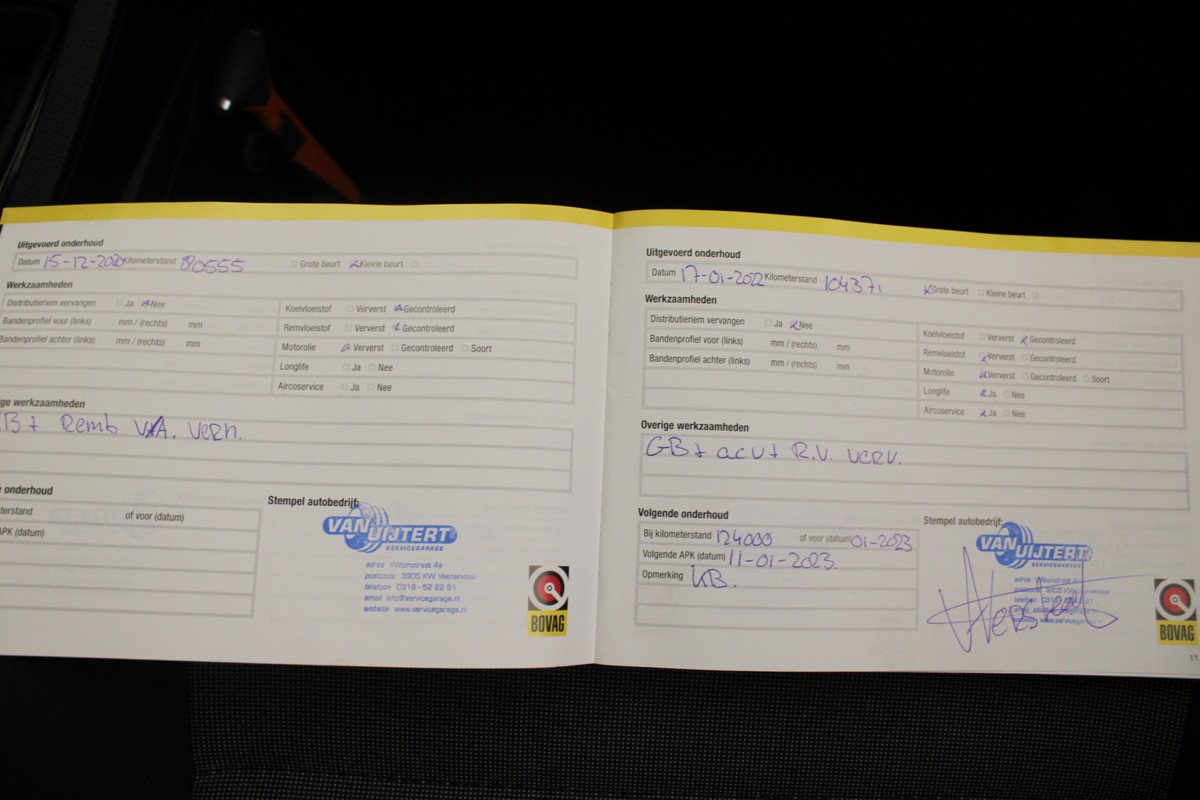 Uitgevoerd onderhoud
Datum 15-12-2020 Kilometerstand 80555 Grote beurt Kleine beurt
Werkzaamheden
Distributieriem vervangen Ja Nee
Bandenprofiel voor (links) mm / (rechts) mm
Bandenprofiel achter (links) mm / (rechts) mm
Koelvloeistof Ververst Gecontroleerd
Remvloeistof Ververst Gecontroleerd
Motorolie Ververst Gecontroleerd Soort
Longlife Ja Nee
Aircoservice Ja Nee
ge werkzaamheden
B + Remb V+A. Vern.
onderhoud
terstand of voor (datum)
APK (datum)
Stempel autobedrijf:
VAN UIJTERT
SERVICEGARAGE
adres Wiltonstraat 4a
postcode 3905 KW Veenendaal
telefoon 0318 - 52 22 51
email info@servicegarage.nl
website www.servicegarage.nl
BOVAG
Uitgevoerd onderhoud
Datum 17-01-2022 Kilometerstand 104371 Grote beurt Kleine beurt
Werkzaamheden
Distributieriem vervangen Ja Nee
Bandenprofiel voor (links) mm / (rechts) mm
Bandenprofiel achter (links) mm / (rechts) mm
Koelvloeistof Ververst Gecontroleerd
Remvloeistof Ververst Gecontroleerd
Motorolie Ververst Gecontroleerd Soort
Longlife Ja Nee
Aircoservice Ja Nee
Overige werkzaamheden
GB + accu + R.V. verv.
Volgende onderhoud
Bij kilometerstand 124000 of voor (datum) 01-2023
Volgende APK (datum) 11-01-2023.
Opmerking KB.
Stempel autobedrijf:
VAN UIJTERT
SERVICEGARAGE
adres Wiltonstraat 4a
postcode 3905 KW
telefoon
email
website www.servicegarage.nl
BOVAG
11